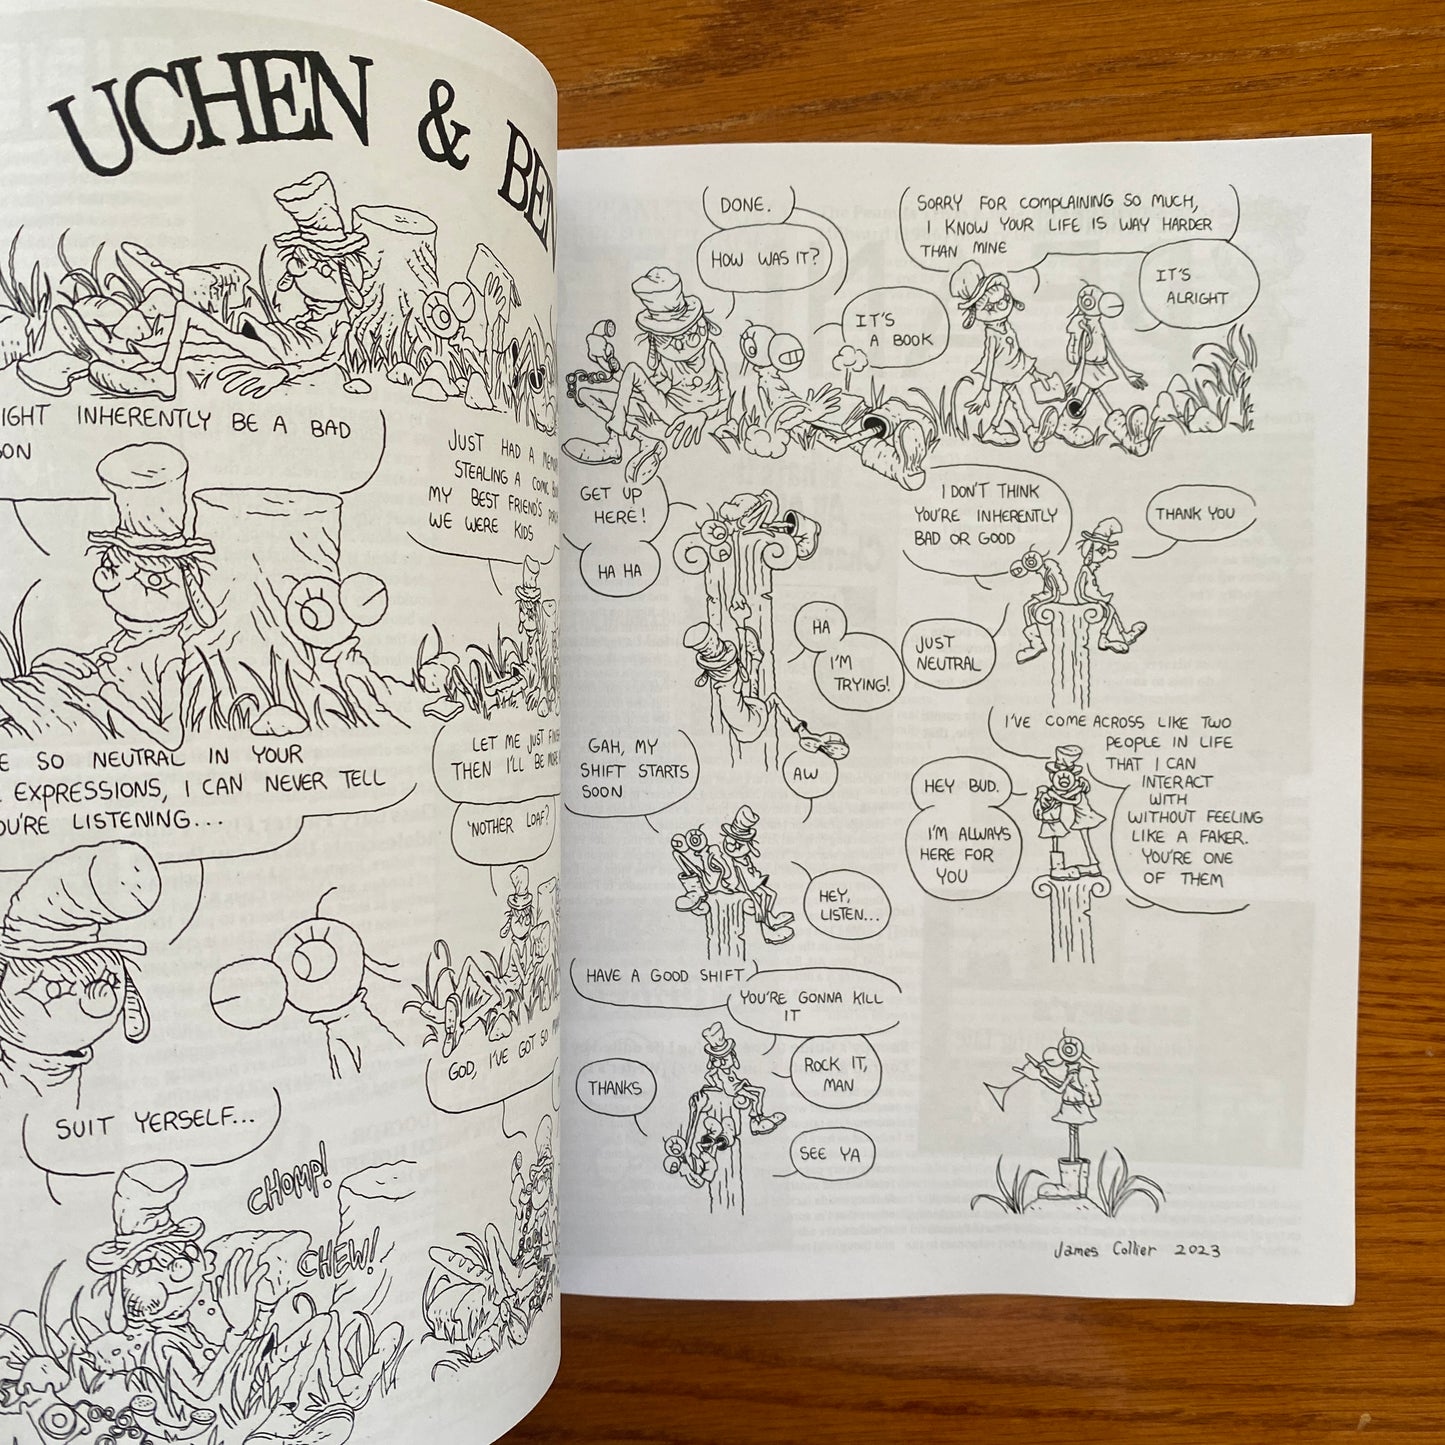 UCHEN &
INHERENTLY BE A BAD
JUST HAD A
STEALING A COMIC
MY BEST FRIEND'S
WE WERE KIDS
SO NEUTRAL IN YOUR
EXPRESSIONS, I CAN NEVER TELL
LISTENING...
LET ME JUST
THEN I'LL BE
'NOTHER LOAF?
GOD, I'VE GOT SO
SUIT YERSELF...
CHOMP!
CHEW!
DONE.
HOW WAS IT?
IT'S
A BOOK
SORRY FOR COMPLAINING SO MUCH,
I KNOW YOUR LIFE IS WAY HARDER
THAN MINE
IT'S
ALRIGHT
GET UP
HERE!
HA HA
HA
I'M
TRYING!
I DON'T THINK
YOU'RE INHERENTLY
BAD OR GOOD
THANK YOU
JUST
NEUTRAL
GAH, MY
SHIFT STARTS
SOON
AW
HEY,
LISTEN...
I'VE COME ACROSS LIKE TWO
PEOPLE IN LIFE
THAT I CAN
INTERACT
WITH
WITHOUT FEELING
LIKE A FAKER.
YOU'RE ONE
OF THEM
HEY BUD.
I'M ALWAYS
HERE FOR
YOU
HAVE A GOOD SHIFT
YOU'RE GONNA KILL
IT
ROCK IT,
MAN
THANKS
SEE YA
James Collier 2023